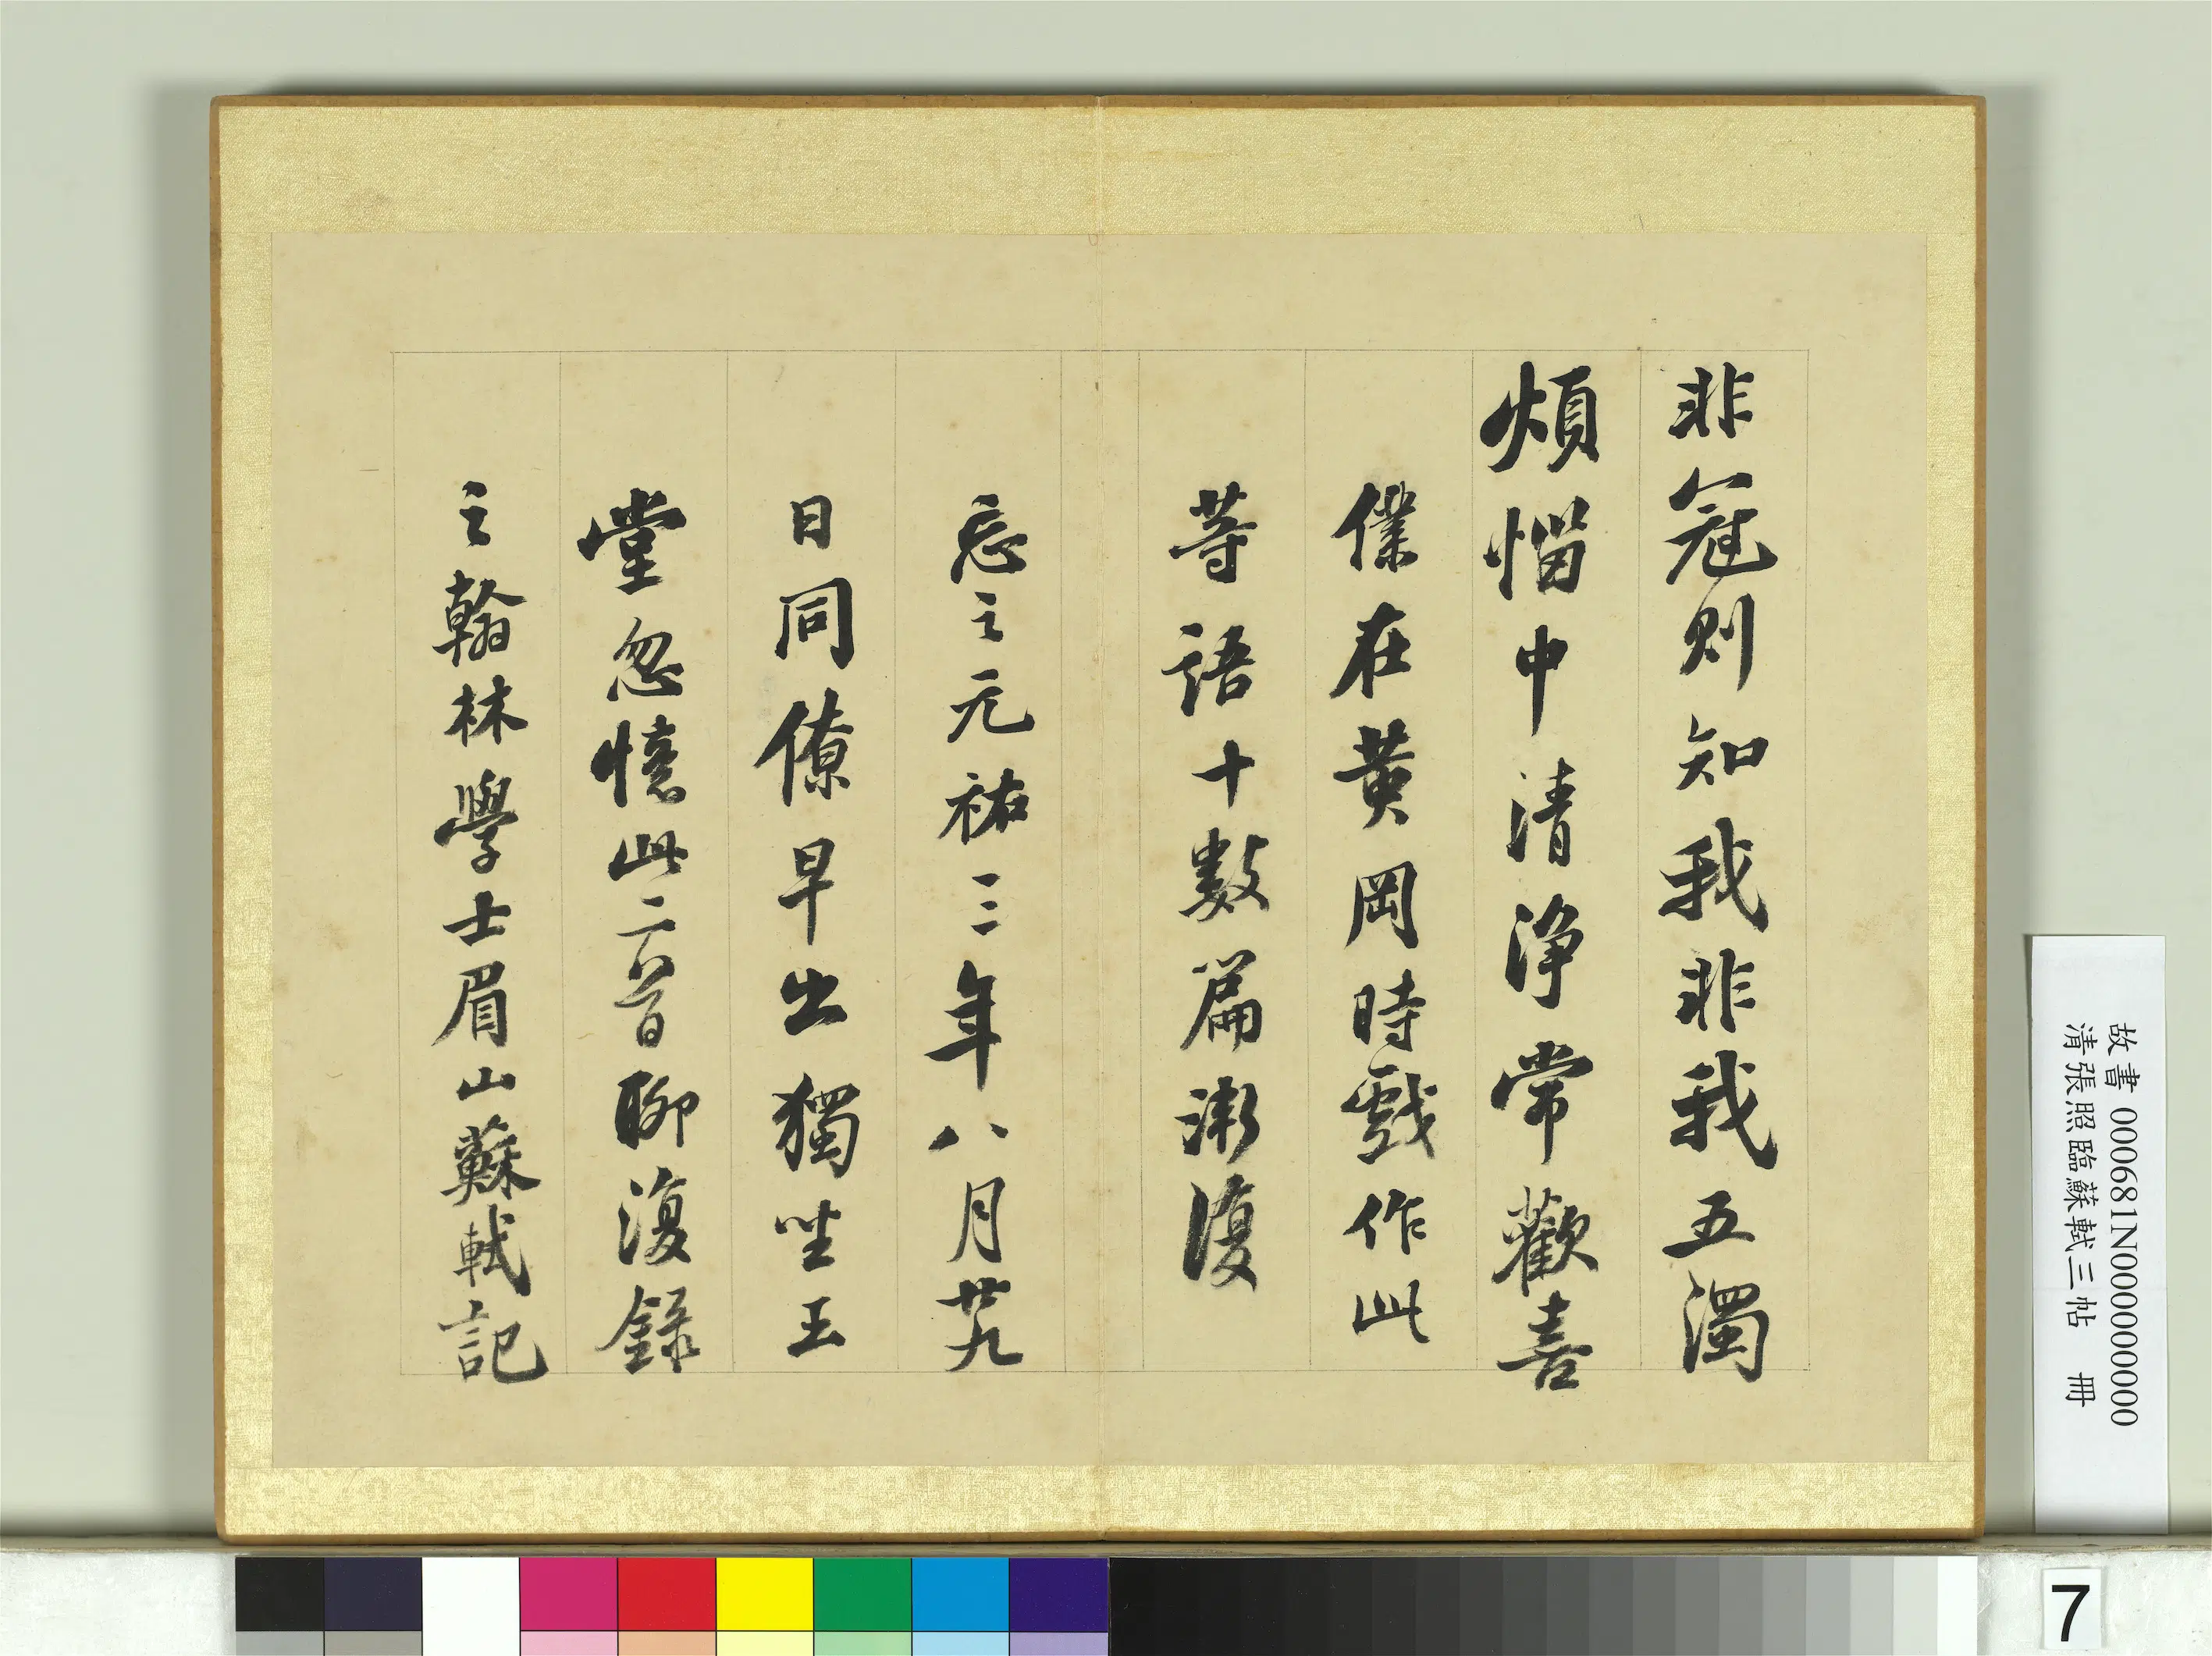 非冠則知我非我五濁
煩惱中清淨常歡喜
僕在黃岡時戲作此
等語十數篇漸復
忘之元祐三年八月廿九
日同僚早出獨坐玉
堂忽憶此二首聊復錄
之翰林學士眉山蘇軾記
故書 000681N000000000
清張照臨蘇軾三帖 冊
7